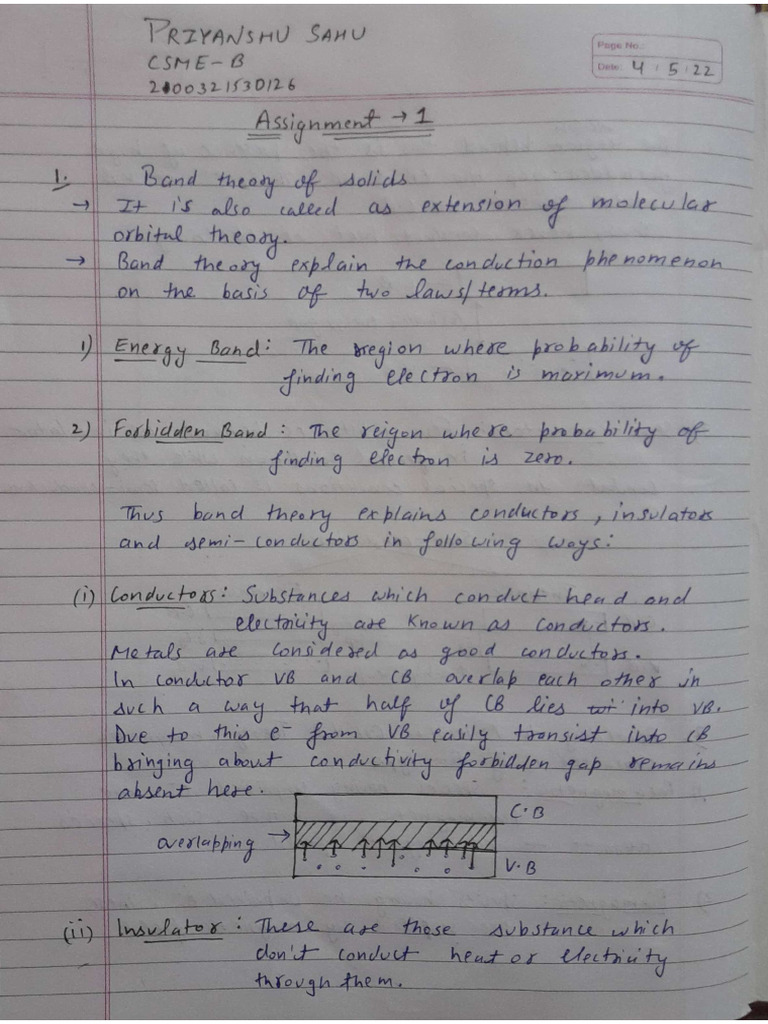 PRIYANSHU SAHU
CSME-B
Page No.:
Date: 4 5 22
2100321530126
Assignment → 1
1. Band theory of solids
→ It is also called as extension of molecular
orbital theory.
→ Band theory explain the conduction phenomenon
on the basis of two laws/terms.
1) Energy Band: The region where probability of
finding electron is maximum.
2) Forbidden Band: The reigon where probability of
finding electron is zero.
Thus band theory explains conductors, insulators
and semi-conductors in following ways:
(i) Conductors: Substances which conduct head and
electricity are known as conductors.
Metals are considered as good conductors.
In conductor VB and CB overlap each other in
such a way that half of CB lies into VB.
Due to this e⁻ from VB easily transist into CB
bringing about conductivity forbidden gap remains
absent here.
C·B
overlapping →
V·B
(ii) Insulator: These are those substance which
don't conduct heat or electricity
through them.